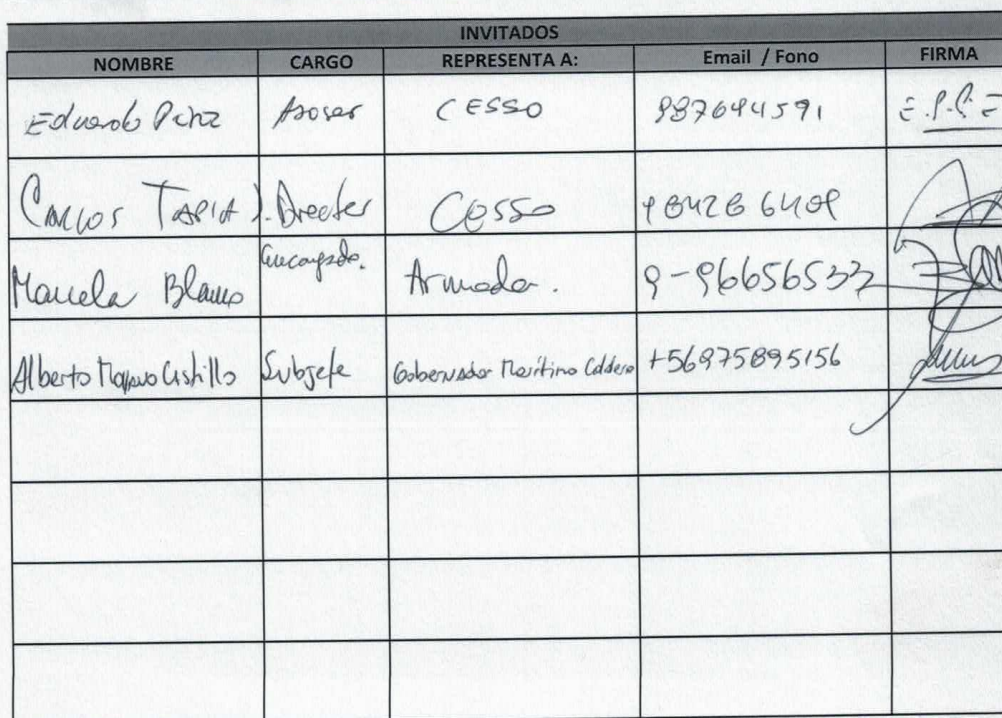 INVITADOS
NOMBRE CARGO REPRESENTA A: Email / Fono FIRMA
Eduardo Asesor CESSO 987694591 E.P.
Carlos Tapia J. Director Cesso
Encargado.
Blanco Armada. 9-96656532
Alberto Castillo Subjefe Gobernador Marítimo Caldera +56975895156